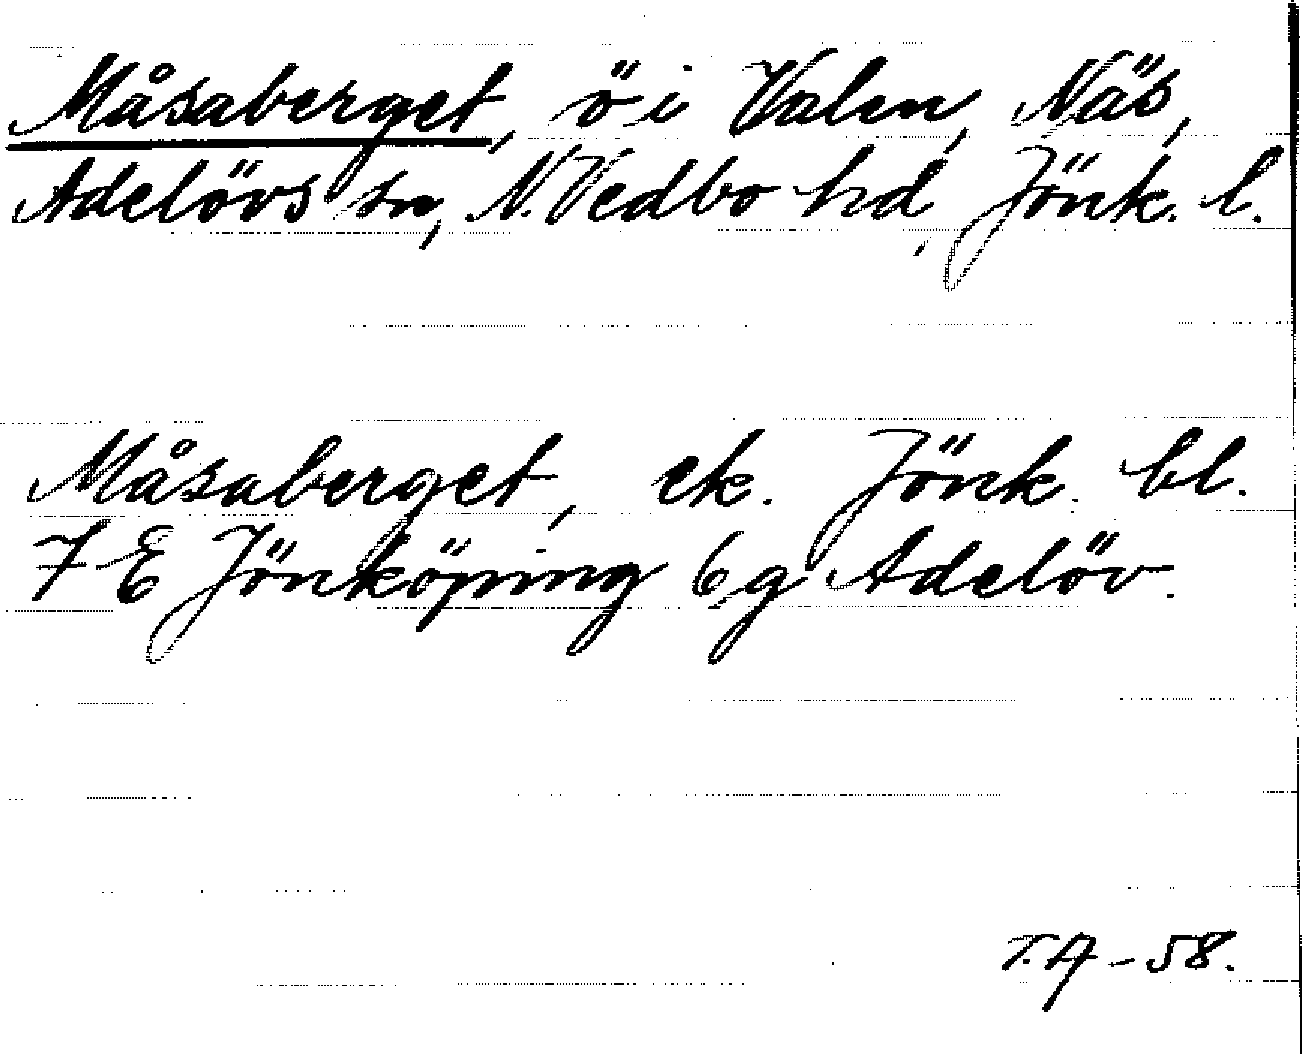 Måsaberget, ö i Valen, Näs,
Adelövs sn, N. Vedbo hd, Jönk. l.
Måsaberget, ek. Jönk. bl.
7 E Jönköping 6g Adelöv.
T.A - 58.